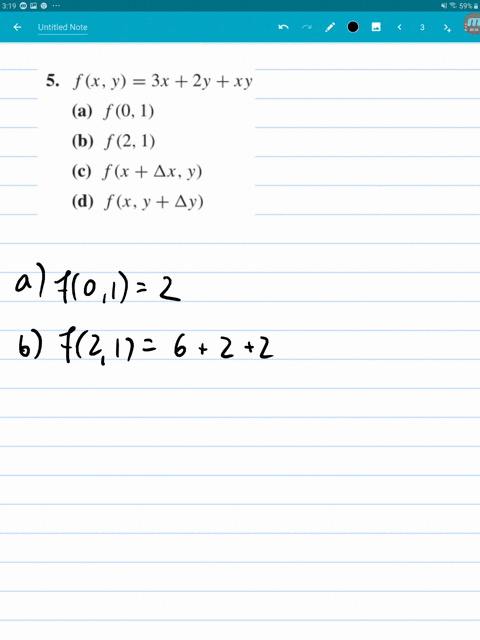 3:19
59%
Untitled Note
3
5. f(x, y) = 3x + 2y + xy
(a) f(0, 1)
(b) f(2, 1)
(c) f(x + Δx, y)
(d) f(x, y + Δy)
a) f(0,1) = 2
b) f(2,1) = 6 + 2 + 2